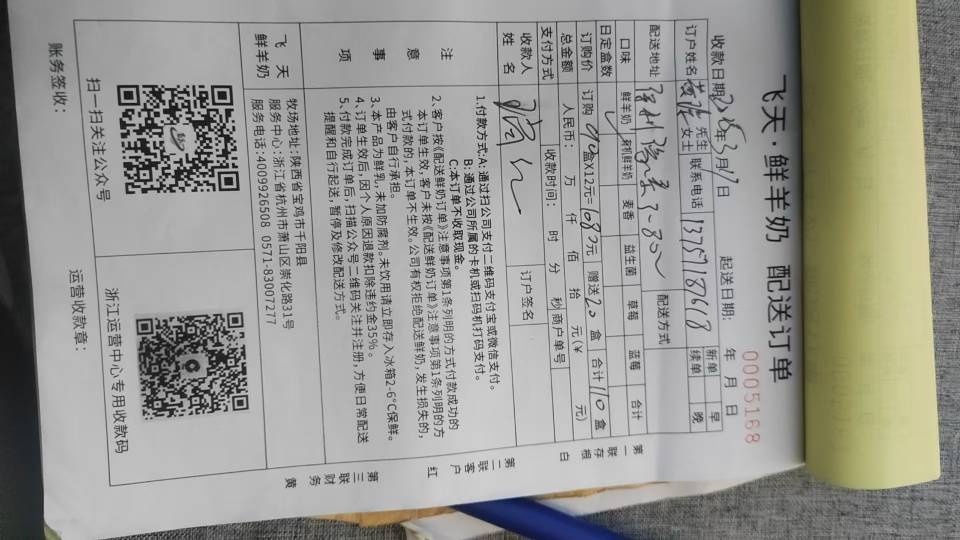 飞天·鲜羊奶 配送订单
0005168
收款日期: 年3月17日 起送日期: 年 月 日
订户姓名 先生 女士 联系电话 13757187668 新单 续单 早 晚
配送地址 3-802 配送方式
口味 鲜羊奶 有机鲜羊奶 麦香 益生菌 草莓 蓝莓 合计
日定盒数 ✓
订购价 订购90盒X12元=1080元 赠送20盒 合计110盒
总金额 人民币: 万 仟 佰 拾 元(¥ 元)
支付方式 收款时间: 时 分 秒 商户单号
收款人姓名 订户签名
注意事项
1.付款方式:A:通过扫公司支付二维码支付宝或微信支付。
B:通过公司所属的卡机或扫码机打码支付。
C:本订单不收取现金。
2、客户按《配送鲜奶订单》注意事项第1条列明的方式付款成功的
本订单生效,客户未按《配送鲜奶订单》注意事项第1条列明的方
式付款的,本订单不生效。公司有权拒绝配送鲜奶,发生损失的,
由客户自行承担。
3、本产品为鲜乳,未加防腐剂。未饮用请立即存入冰箱2-6°C保鲜。
4、订单生效后,因个人原因退款扣除违约金35%。
5、付款完成订单后,扫描公众号二维码关注并注册,方便日常配送
提醒和自行起送,暂停及修改配送方式。
飞天鲜羊奶
牧场地址:陕西省宝鸡市千阳县
服务中心:浙江省杭州市萧山区崇化路31号
服务电话:4009926508 0571-83007217
扫一扫关注公众号
浙江运营中心专用收款码
账务签收:
运营收款章:
第一联存根 白
第二联客户 红
第三联财务 黄